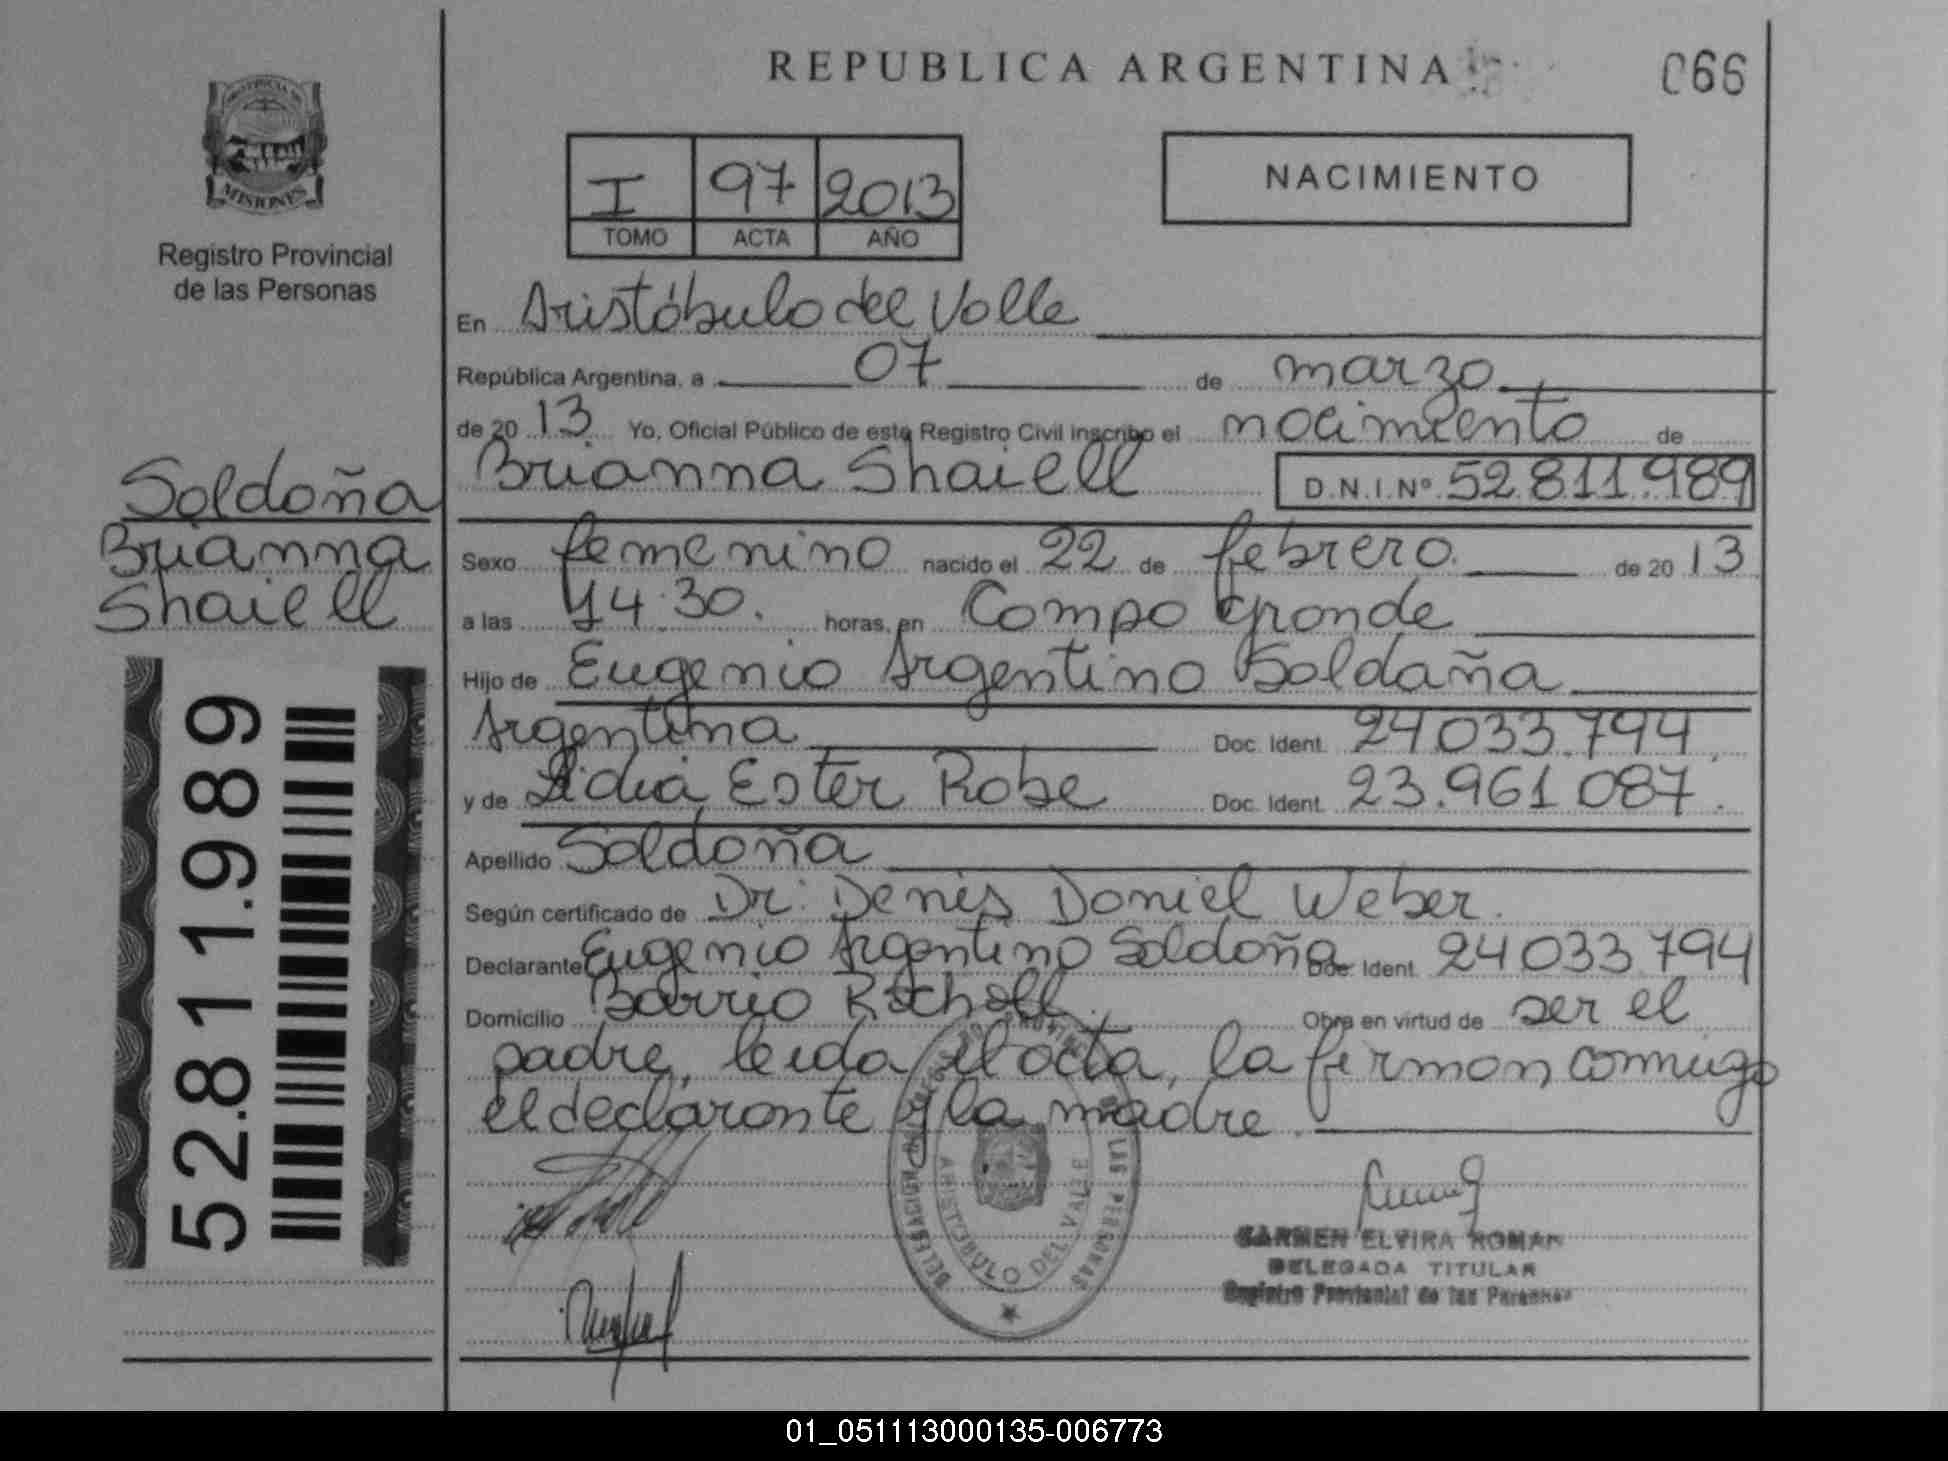 REPUBLICA ARGENTINA
066
PROVINCIA DE
MISIONES
Registro Provincial
de las Personas
I 97 2013
TOMO ACTA AÑO
NACIMIENTO
En Aristóbulo del Valle
República Argentina, a 07 de marzo
de 20 13 Yo, Oficial Público de este Registro Civil inscribo el nacimiento de
Brianna Shaiell D.N.I.Nº 52.811.989
Saldaña
Brianna
Shaiell
52.811.989
Sexo femenino nacido el 22 de febrero de 20 13
a las 14:30. horas, en Campo Grande
Hijo de Eugenio Argentino Saldaña
Argentina Doc. Ident. 24 033.794
y de Lidia Ester Robe Doc. Ident. 23.961 087.
Apellido Saldaña
Según certificado de Dr. Denis Daniel Weber.
Declarante Eugenio Argentino Saldaña Doc. Ident. 24 033 794
Domicilio Barrio Obra en virtud de ser el
padre, leida el acta, la firman conmigo
el declarante y la madre.
DELEGACION DE LAS PERSONAS
ARISTOBULO DEL VALLE
CARMEN ELVIRA ROMAN
DELEGADA TITULAR
Registro Provincial de las Personas
01_051113000135-006773